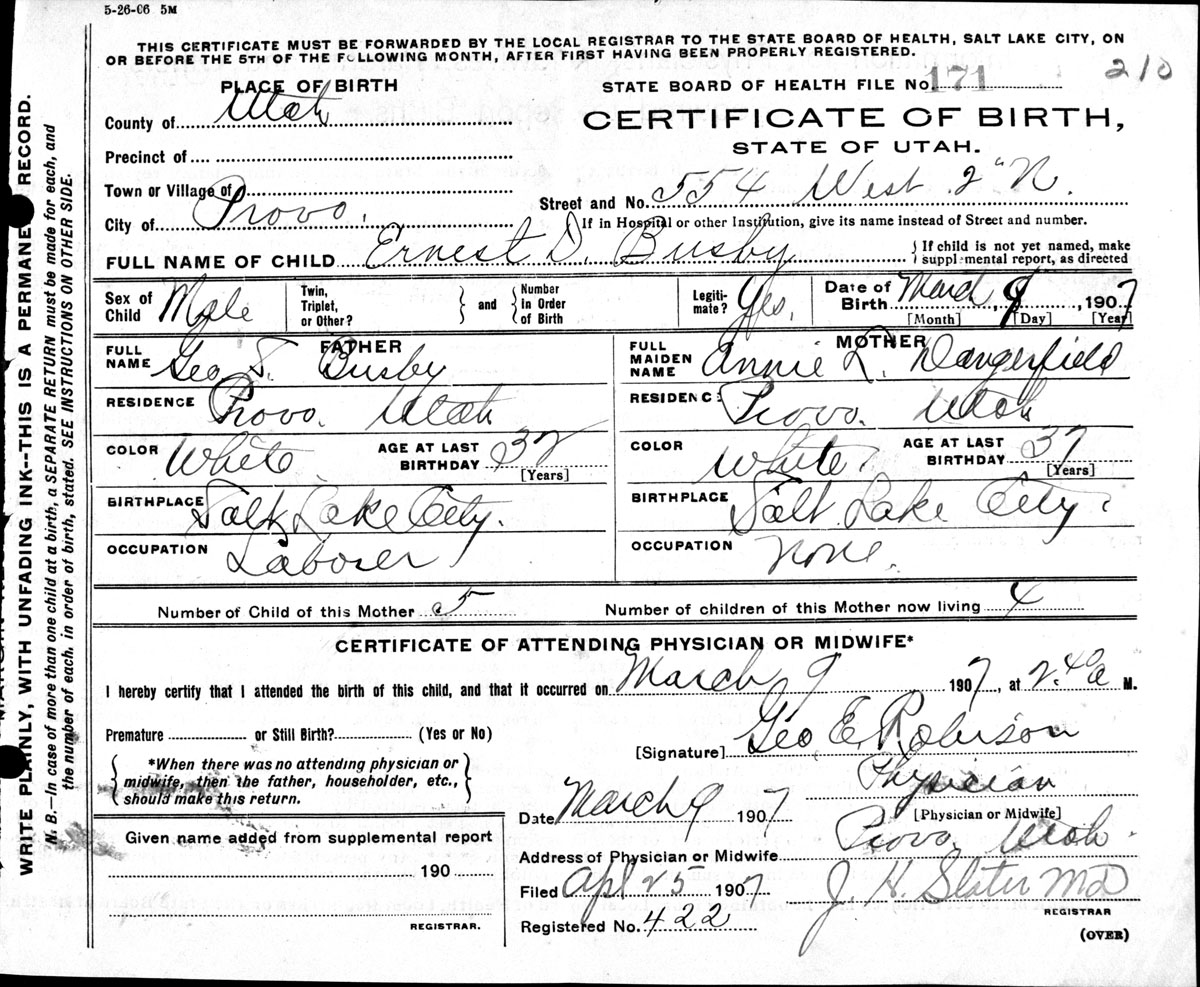 5-26-06 5M
THIS CERTIFICATE MUST BE FORWARDED BY THE LOCAL REGISTRAR TO THE STATE BOARD OF HEALTH, SALT LAKE CITY, ON
OR BEFORE THE 5TH OF THE FOLLOWING MONTH, AFTER FIRST HAVING BEEN PROPERLY REGISTERED.
210
PLACE OF BIRTH
STATE BOARD OF HEALTH FILE No. 171
County of Utah
CERTIFICATE OF BIRTH,
STATE OF UTAH.
Precinct of
Town or Village of
Street and No. 554 West 2" N.
City of Provo.
If in Hospital or other Institution, give its name instead of Street and number.
FULL NAME OF CHILD Ernest D. Busby
{ If child is not yet named, make
supplemental report, as directed
Sex of Child Male
Twin, Triplet, or Other? } and { Number in Order of Birth
Legitimate? Yes.
Date of Birth March 9, 1907
[Month] [Day] [Year]
FATHER
FULL NAME Geo S. Busby
RESIDENCE Provo. Utah
COLOR White
AGE AT LAST BIRTHDAY 32
[Years]
BIRTHPLACE Salt Lake City.
OCCUPATION Laborer
MOTHER
FULL MAIDEN NAME Annie L. Dangerfield
RESIDENCE Provo. Utah
COLOR White
AGE AT LAST BIRTHDAY 37
[Years]
BIRTHPLACE Salt Lake City.
OCCUPATION None.
Number of Child of this Mother 5
Number of children of this Mother now living 4
CERTIFICATE OF ATTENDING PHYSICIAN OR MIDWIFE*
I hereby certify that I attended the birth of this child, and that it occurred on March 9 1907, at 2.40 a M.
Premature or Still Birth? (Yes or No)
[Signature] Geo E. Robison
{ *When there was no attending physician or
midwife, then the father, householder, etc.,
should make this return. }
Physician
[Physician or Midwife]
Date March 9 1907
Given name added from supplemental report
190
REGISTRAR.
Address of Physician or Midwife Provo Utah.
Filed Apl 25 1907
J. H. Slater MD
REGISTRAR
Registered No. 422
(OVER)
WRITE PLAINLY, WITH UNFADING INK--THIS IS A PERMANENT RECORD.
N. B.—In case of more than one child at a birth, a SEPARATE RETURN must be made for each, and
the number of each, in order of birth, stated. SEE INSTRUCTIONS ON OTHER SIDE.